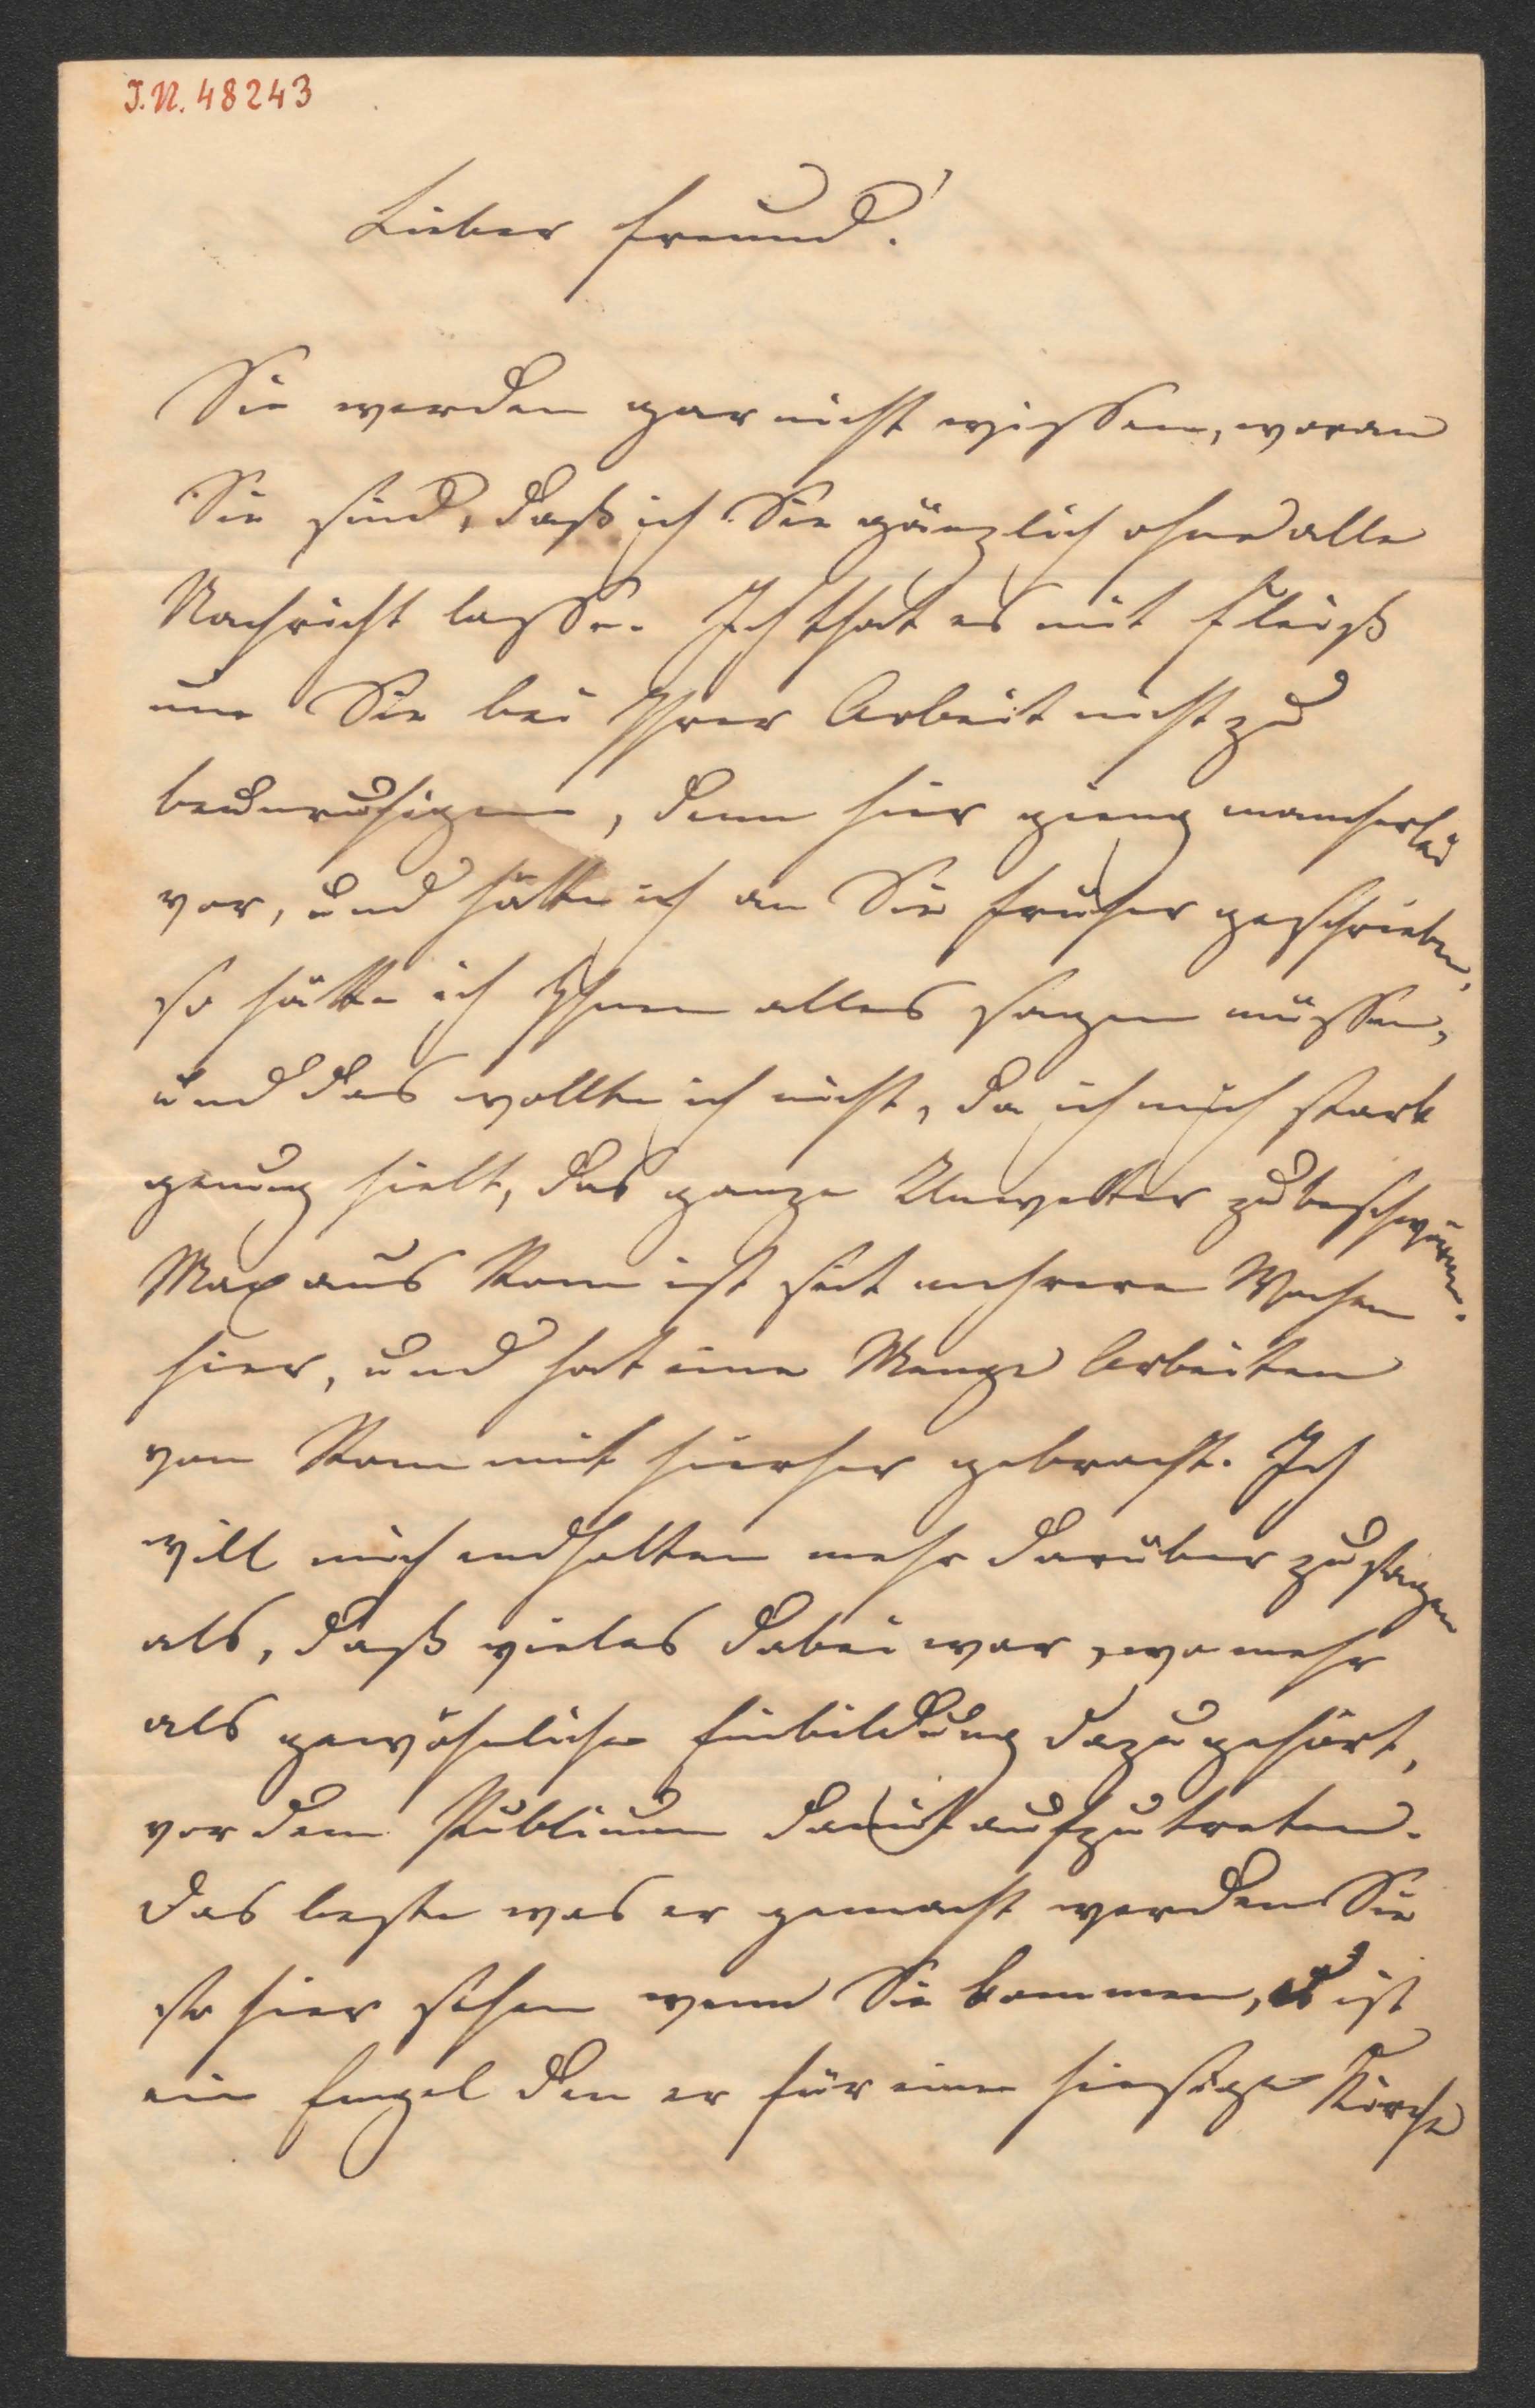 I.N. 48243
Lieber Freund!
Sie werden gar nicht wissen, woran
Sie sind, daß ich Sie gänzlich ohne alle
Nachricht lasse. Ich that es mit Fleiß
um Sie bei Ihrer Arbeit nicht zu
beunruhigen, denn hier gieng mancherlei
vor, und hätte ich an Sie früher geschrieben,
so hätte ich Ihnen alles sagen müssen,
und das wollte ich nicht, da ich mich stark
genung hielt, das ganze Unwetter zu beschwören.
Max aus Rom ist seit mehrere Wochen
hier, und hat eine Menge Arbeiten
von Rom mit hierher gebracht. Ich
will mich endhalten mehr darüber zu sagen
als, daß vieles dabei war, wo mehr
als gewöhnliche Einbildung dazu gehört,
vor dem Publicum damit aufzutreten.
Das beste was er gemacht werden Sie
so hier sehen wenn Sie kommen, es ist
ein Engel den er für eine hiesige Kirche